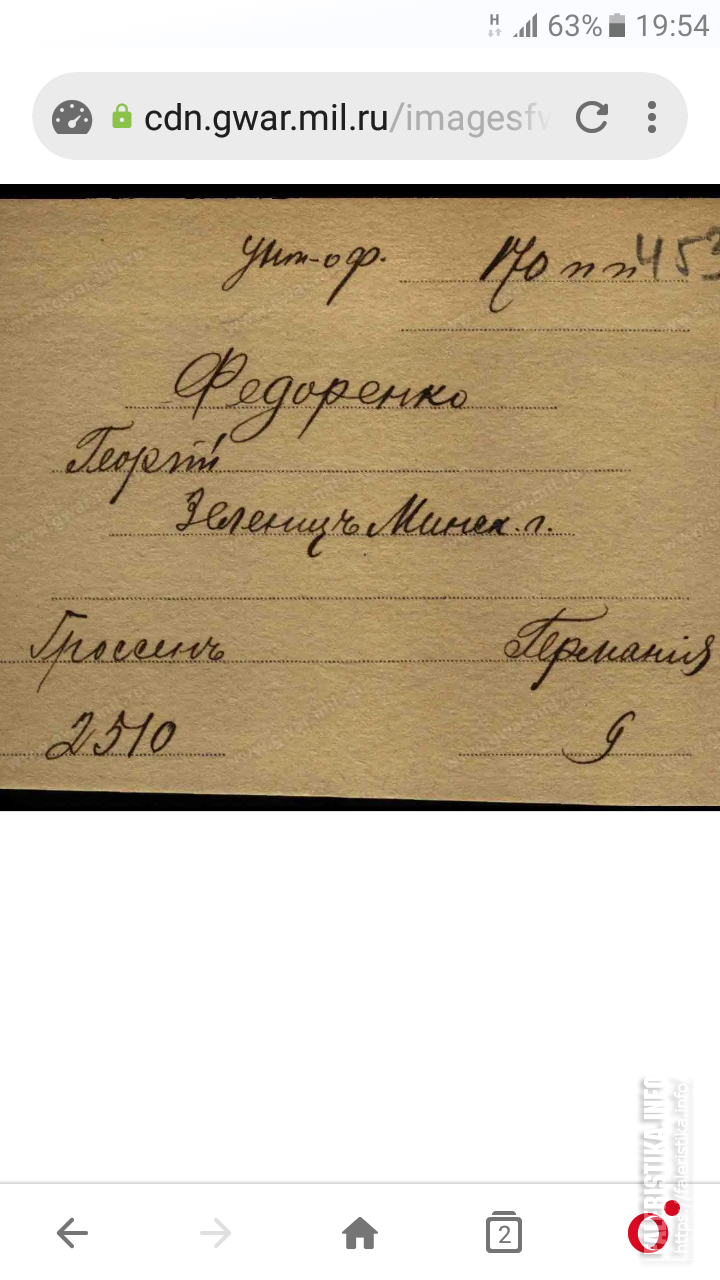 H 63% 19:54
cdn.gwar.mil.ru/imagesfw
Унт-оф. 170 пп 453
Федоренко
Георгій
Зеленицъ Минск. г.
Гроссенъ Германія
2510 9
2
FALERISTIKA.INFO
https://faleristika.info/